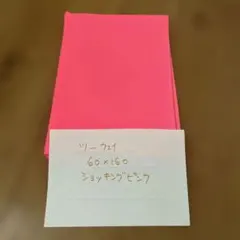 ツーウェイ
60×160
ショッキングピンク